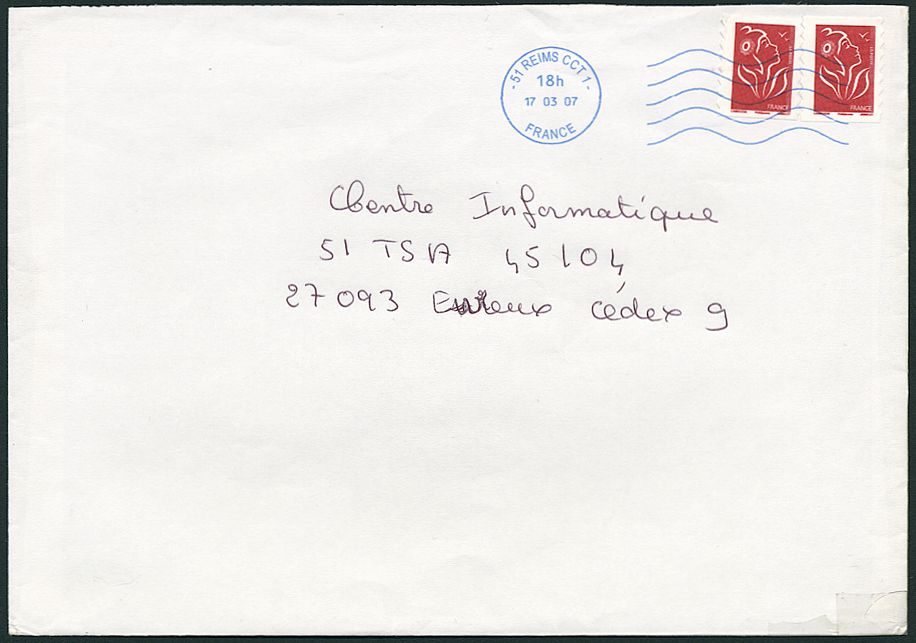 51 REIMS CCT 1
18h
17 03 07
FRANCE
FRANCE
FRANCE
Centre Informatique
51 TSA 45104
27093 Evreux cédex 9